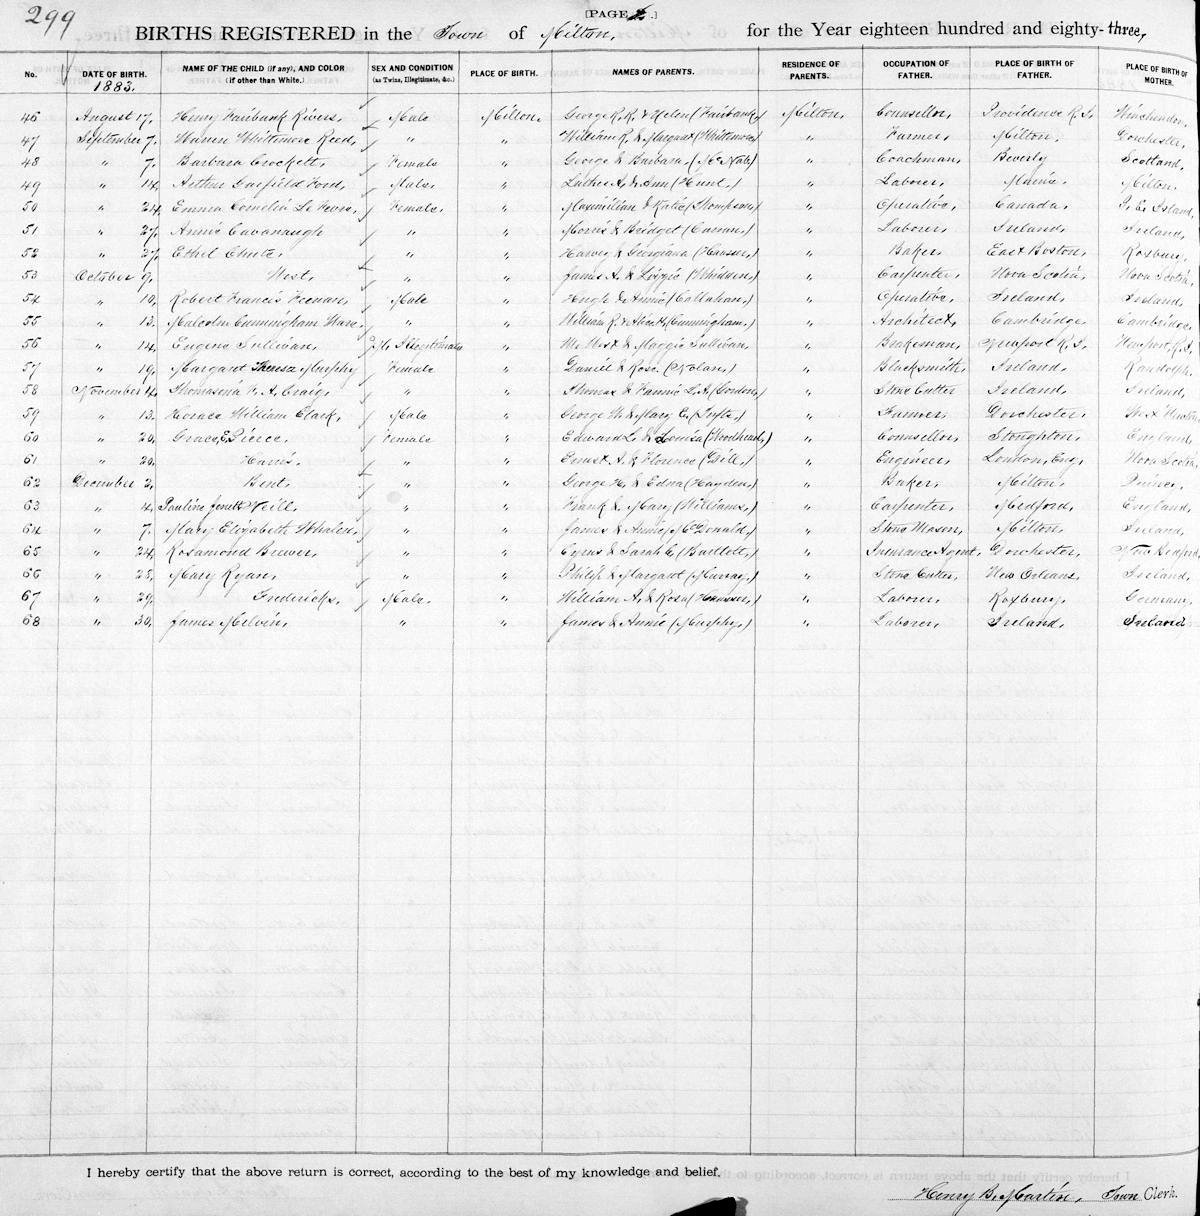 299
[PAGE 2.]
BIRTHS REGISTERED in the Town of Milton, for the Year eighteen hundred and eighty-three,
No. DATE OF BIRTH. 1883. NAME OF THE CHILD (if any), AND COLOR (if other than White.) SEX AND CONDITION (as Twins, Illegitimate, &c.) PLACE OF BIRTH. NAMES OF PARENTS. RESIDENCE OF PARENTS. OCCUPATION OF FATHER. PLACE OF BIRTH OF FATHER. PLACE OF BIRTH OF MOTHER.
46 August 17, Henry Fairbank Rivers, Male Milton, George R. R. & Helen (Fairbank) Milton, Counsellor, Providence R.I. Winchendon,
47 September 7, Warren Whittimore Reed, " " William R. & Margaret (Whittimore) " Farmer, Milton, Dorchester,
48 " 7, Barbara Crockett, Female " George & Barbara, (McNab) " Coachman, Beverly Scotland,
49 " 14, Arthur Garfield Ford, Male, " Luther A. & Ann (Hunt,) " Laborer, Maine, Milton,
50 " 24, Emma Cornelia Le Female, " Maxmilian & Katie (Thompson) " Operative, Canada, P. E. Island,
51 " 27, Annie Cavanaugh " " Morris & Bridget ( " Laborer, Ireland, Ireland,
52 " 27, Ethel Chute, " " Harvey & Georgiana ( " Baker, East Boston, Roxbury,
53 October 9, West, " " James A. & Lizzie ( " Carpenter, Nova Scotia, Nova Scotia,
54 " 10, Robert Francis Feenan, Male " Hugh & Annie (Callahan,) " Operative, Ireland, Ireland,
55 " 13, Malcolm Cunningham Ware, " " William R. & Alice H. (Cunningham,) " Architect, Cambridge, Cambridge,
56 " 14, Eugene Sullivan, M. Illegitimate " M. West & Maggie Sullivan, " Brakeman, Newport R.I. Newport, R.I.
57 " 19, Margaret Theresa Murphy Female " Daniel & Rose (Nolan,) " Blacksmith, Ireland, Randolph,
58 November 4, Thomasina F. A. Craig, " " Thomas & Fannie L. A. (Gordon,) " Stone Cutter Ireland, Ireland,
59 " 13, Horace William Clark, Male " George W. & Mary E. ( " Farmer, Dorchester,
60 " 20, Grace E. Pierce, Female " Edward L. & Louisa (Woodhead,) " Counsellor, Stoughton, England,
61 " 20, Harris, " " Ernest A. & Florence (Dill,) " Engineer, London, Eng, Nova Scotia,
62 December 2, Bent, " " George H. & Edna (Hayden,) " Baker, Milton, Quincy,
63 " 4, Pauline Weill, " " Frank & Mary (Williams,) " Carpenter, Medford, England,
64 " 7, Mary Elizabeth Whalen, " " James & Annie, (McDonald,) " Stone Mason, Milton, Ireland,
65 " 24, Rosamond Brewer, " " Cyrus & Sarah E. (Bartlett,) " Insurance Agent, Dorchester, New Bedford,
66 " 25, Mary Ryan, " " Philip & Margaret (Murray,) " Stone Cutter, New Orleans, Ireland,
67 " 29, Fredericks, Male, " William A. & Rosa ( " Laborer, Roxbury, Germany,
68 " 30, James Melvin, " " James & Annie (Murphy,) " Laborer, Ireland, Ireland
I hereby certify that the above return is correct, according to the best of my knowledge and belief.
Henry B. Martin, Town Clerk.